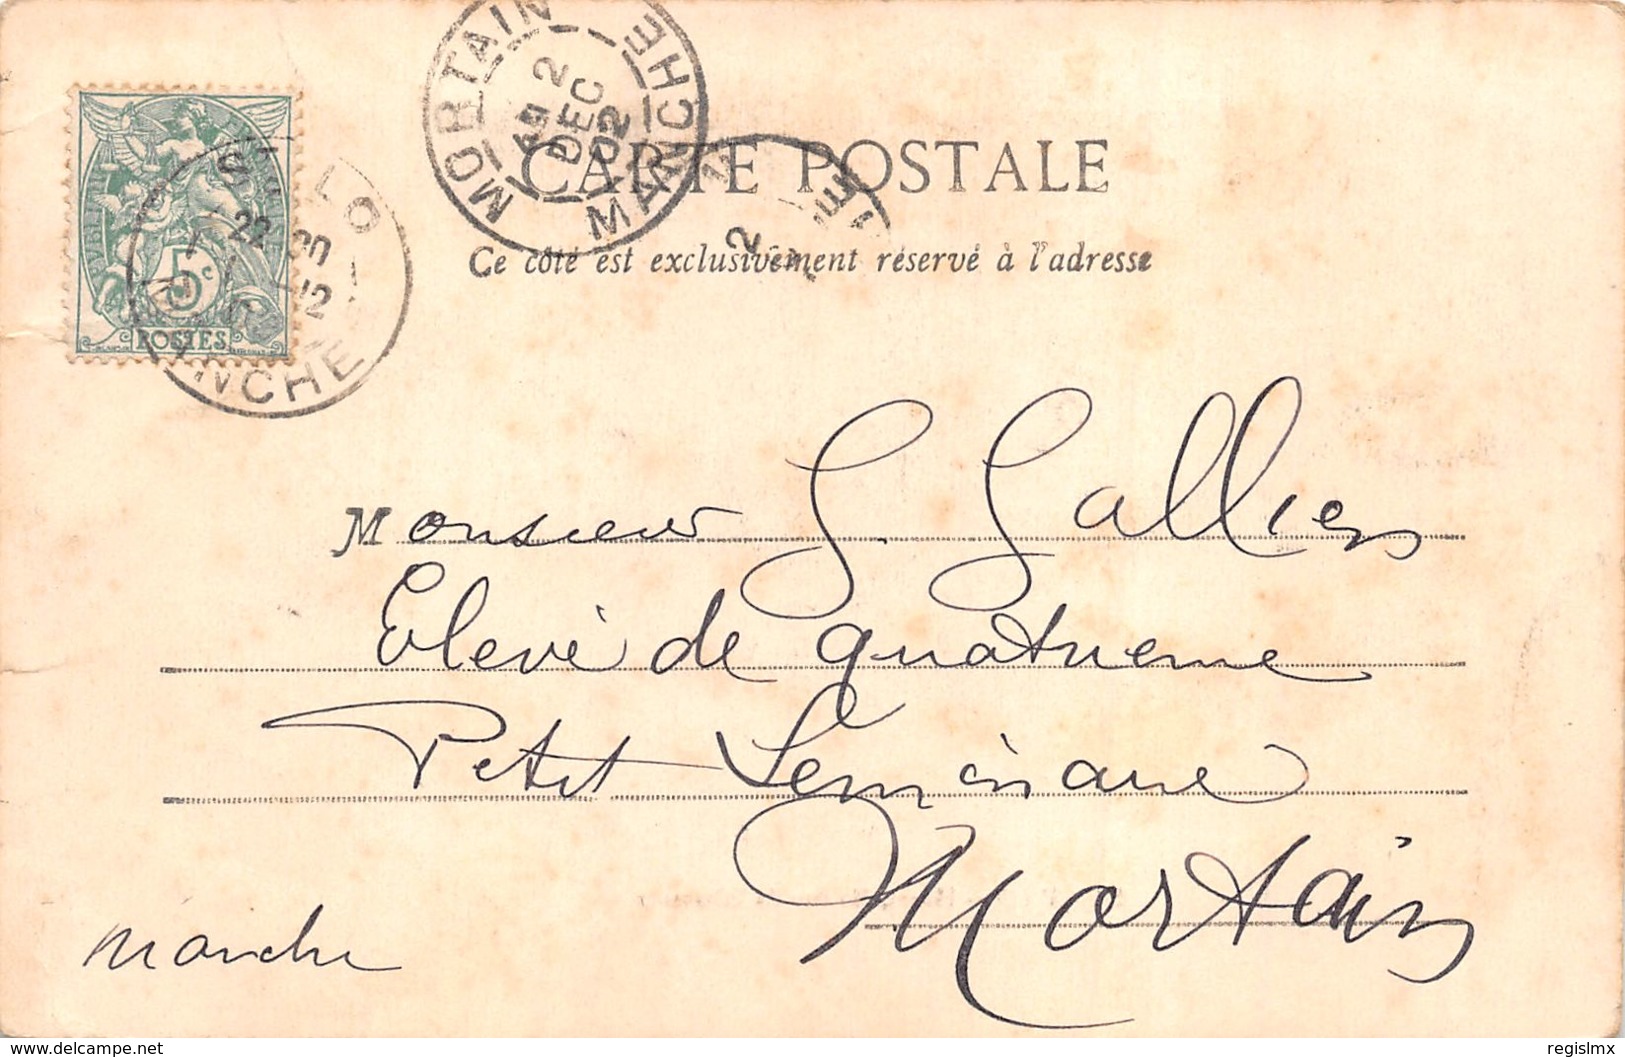 MORTAIN
MANCHE
2
DEC
02
5c
POSTES
22 30
-12
LO
CARTE POSTALE
Ce côté est exclusivement réservé à l'adresse
Monsieur G. Gallien
Elevé de quatrieme
Petit Seminaire
Mortain
Manche
delcampe.net
regislmx